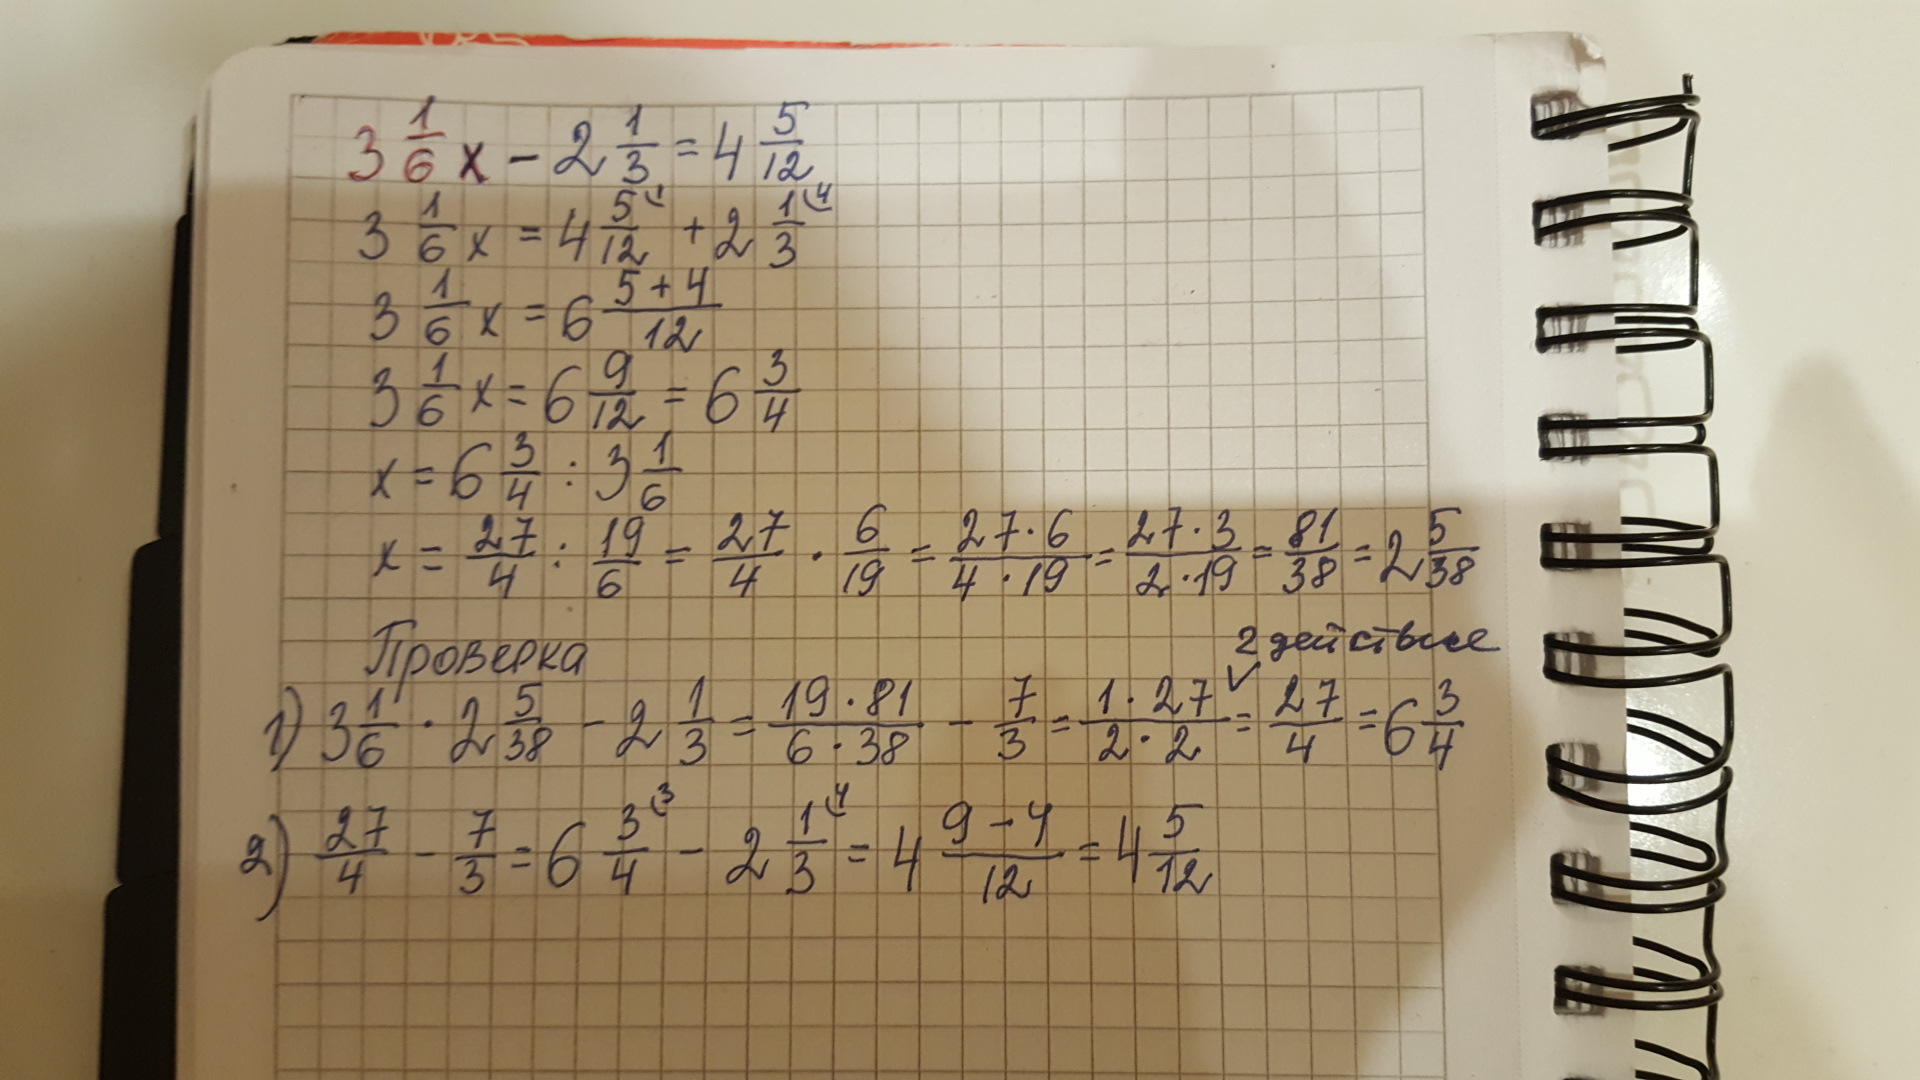 3 1/6 x - 2 1/3 = 4 5/12
3 1/6 x = 4 5/12 (1 + 2 1/3 (4
3 1/6 x = 6 (5+4)/12
3 1/6 x = 6 9/12 = 6 3/4
x = 6 3/4 : 3 1/6
x = 27/4 : 19/6 = 27/4 · 6/19 = (27·6)/(4·19) = (27·3)/(2·19) = 81/38 = 2 5/38
Проверка
2 действие
1) 3 1/6 · 2 5/38 - 2 1/3 = (19·81)/(6·38) - 7/3 = (1·27)/(2·2) ✓ = 27/4 = 6 3/4
2) 27/4 - 7/3 = 6 3/4 (3 - 2 1/3 (4 = 4 (9-4)/12 = 4 5/12